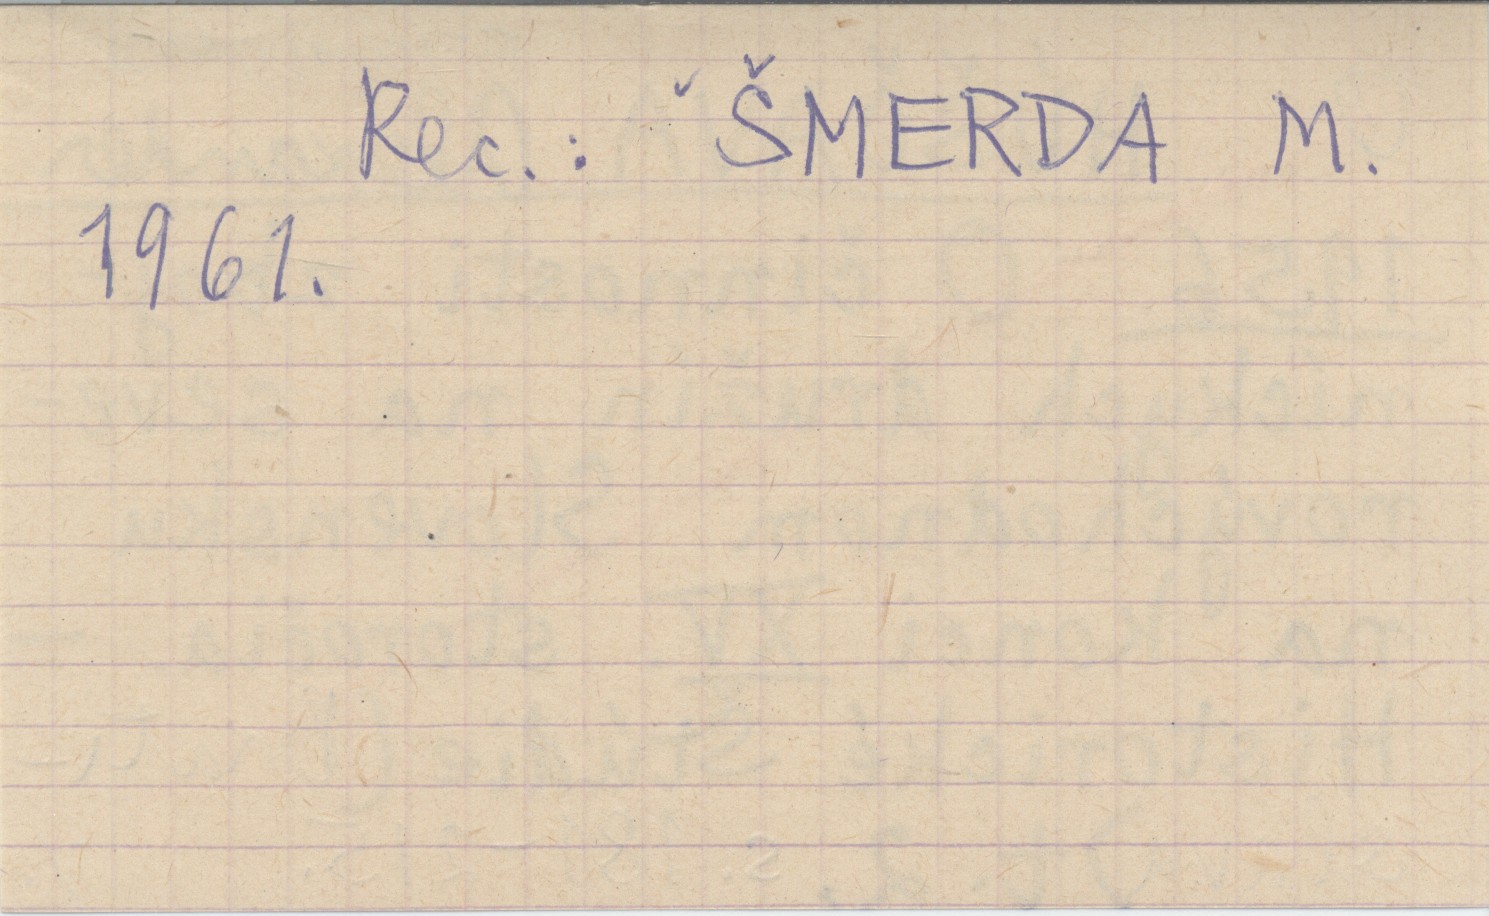 Rec.: ŠMERDA M.
1961.